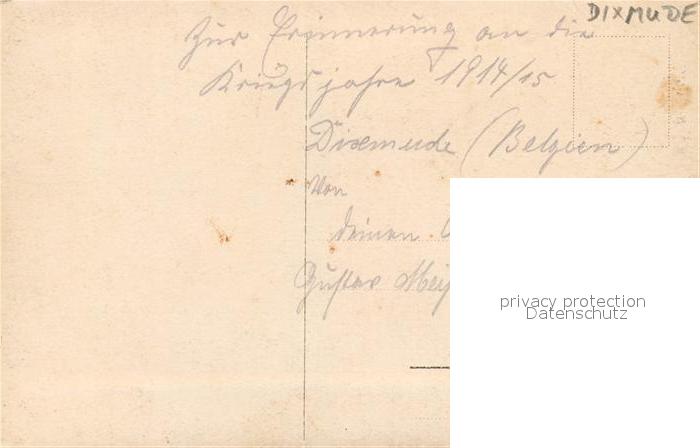 DIXMUDE
Zur Erinnerung an die
Kriegsjahre 1914/15
Dixemude (Belgien)
Von
deinen
Gustav
privacy protection
Datenschutz